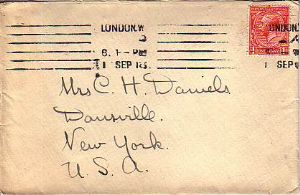 LONDON.W
1 SEP 13
LONDON.W
1 SEP 13
Mrs C. H. Daniels
Dansville.
New York.
U.S.A.